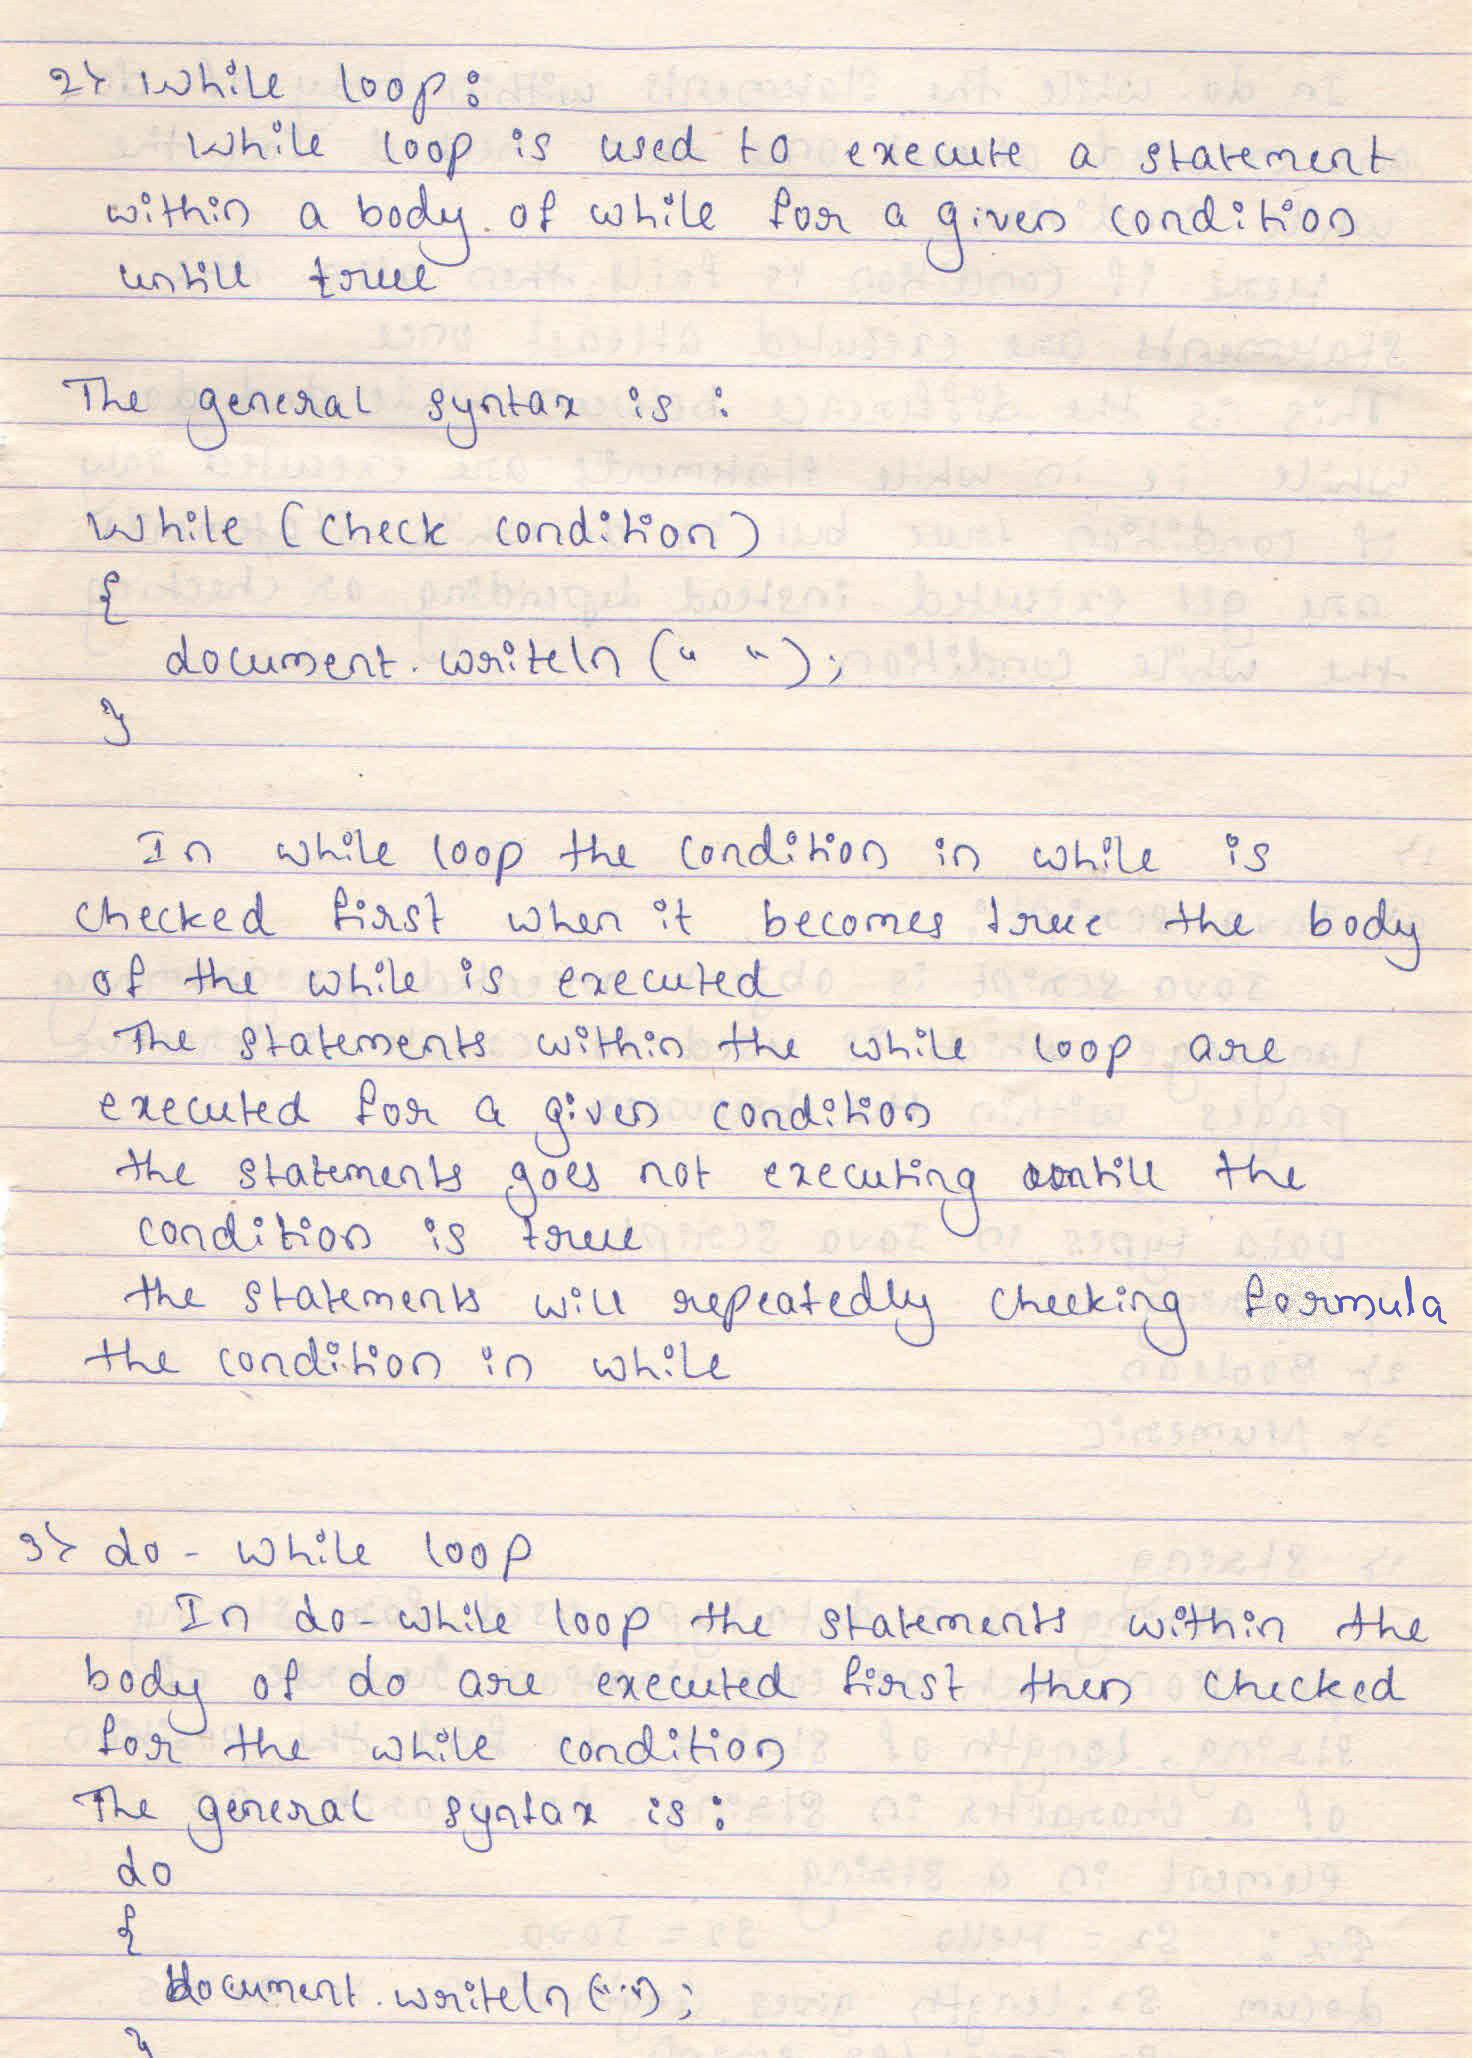 2> While loop:
While loop is used to execute a statement
within a body of while for a given condition
untill true
The general syntax is:
While (check condition)
{
document.writeln (" ");
}
In while loop the condition in while is
checked first when it becomes true the body
of the while is executed
The statements within the while loop are
executed for a given condition
the statements goes not executing untill the
condition is true
the statements will repeatedly checking formula
the condition in while
3> do - while loop
In do-while loop the statements within the
body of do are executed first then checked
for the while condition
The general syntax is:
do
{
document.writeln(" ");
}